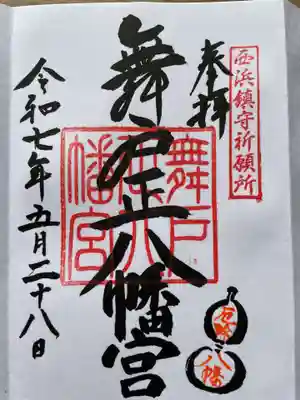 西浜鎮守祈願所
奉拝
舞戸正八幡宮
舞戸
正八
幡宮
令和七年五月二十八日
八幡